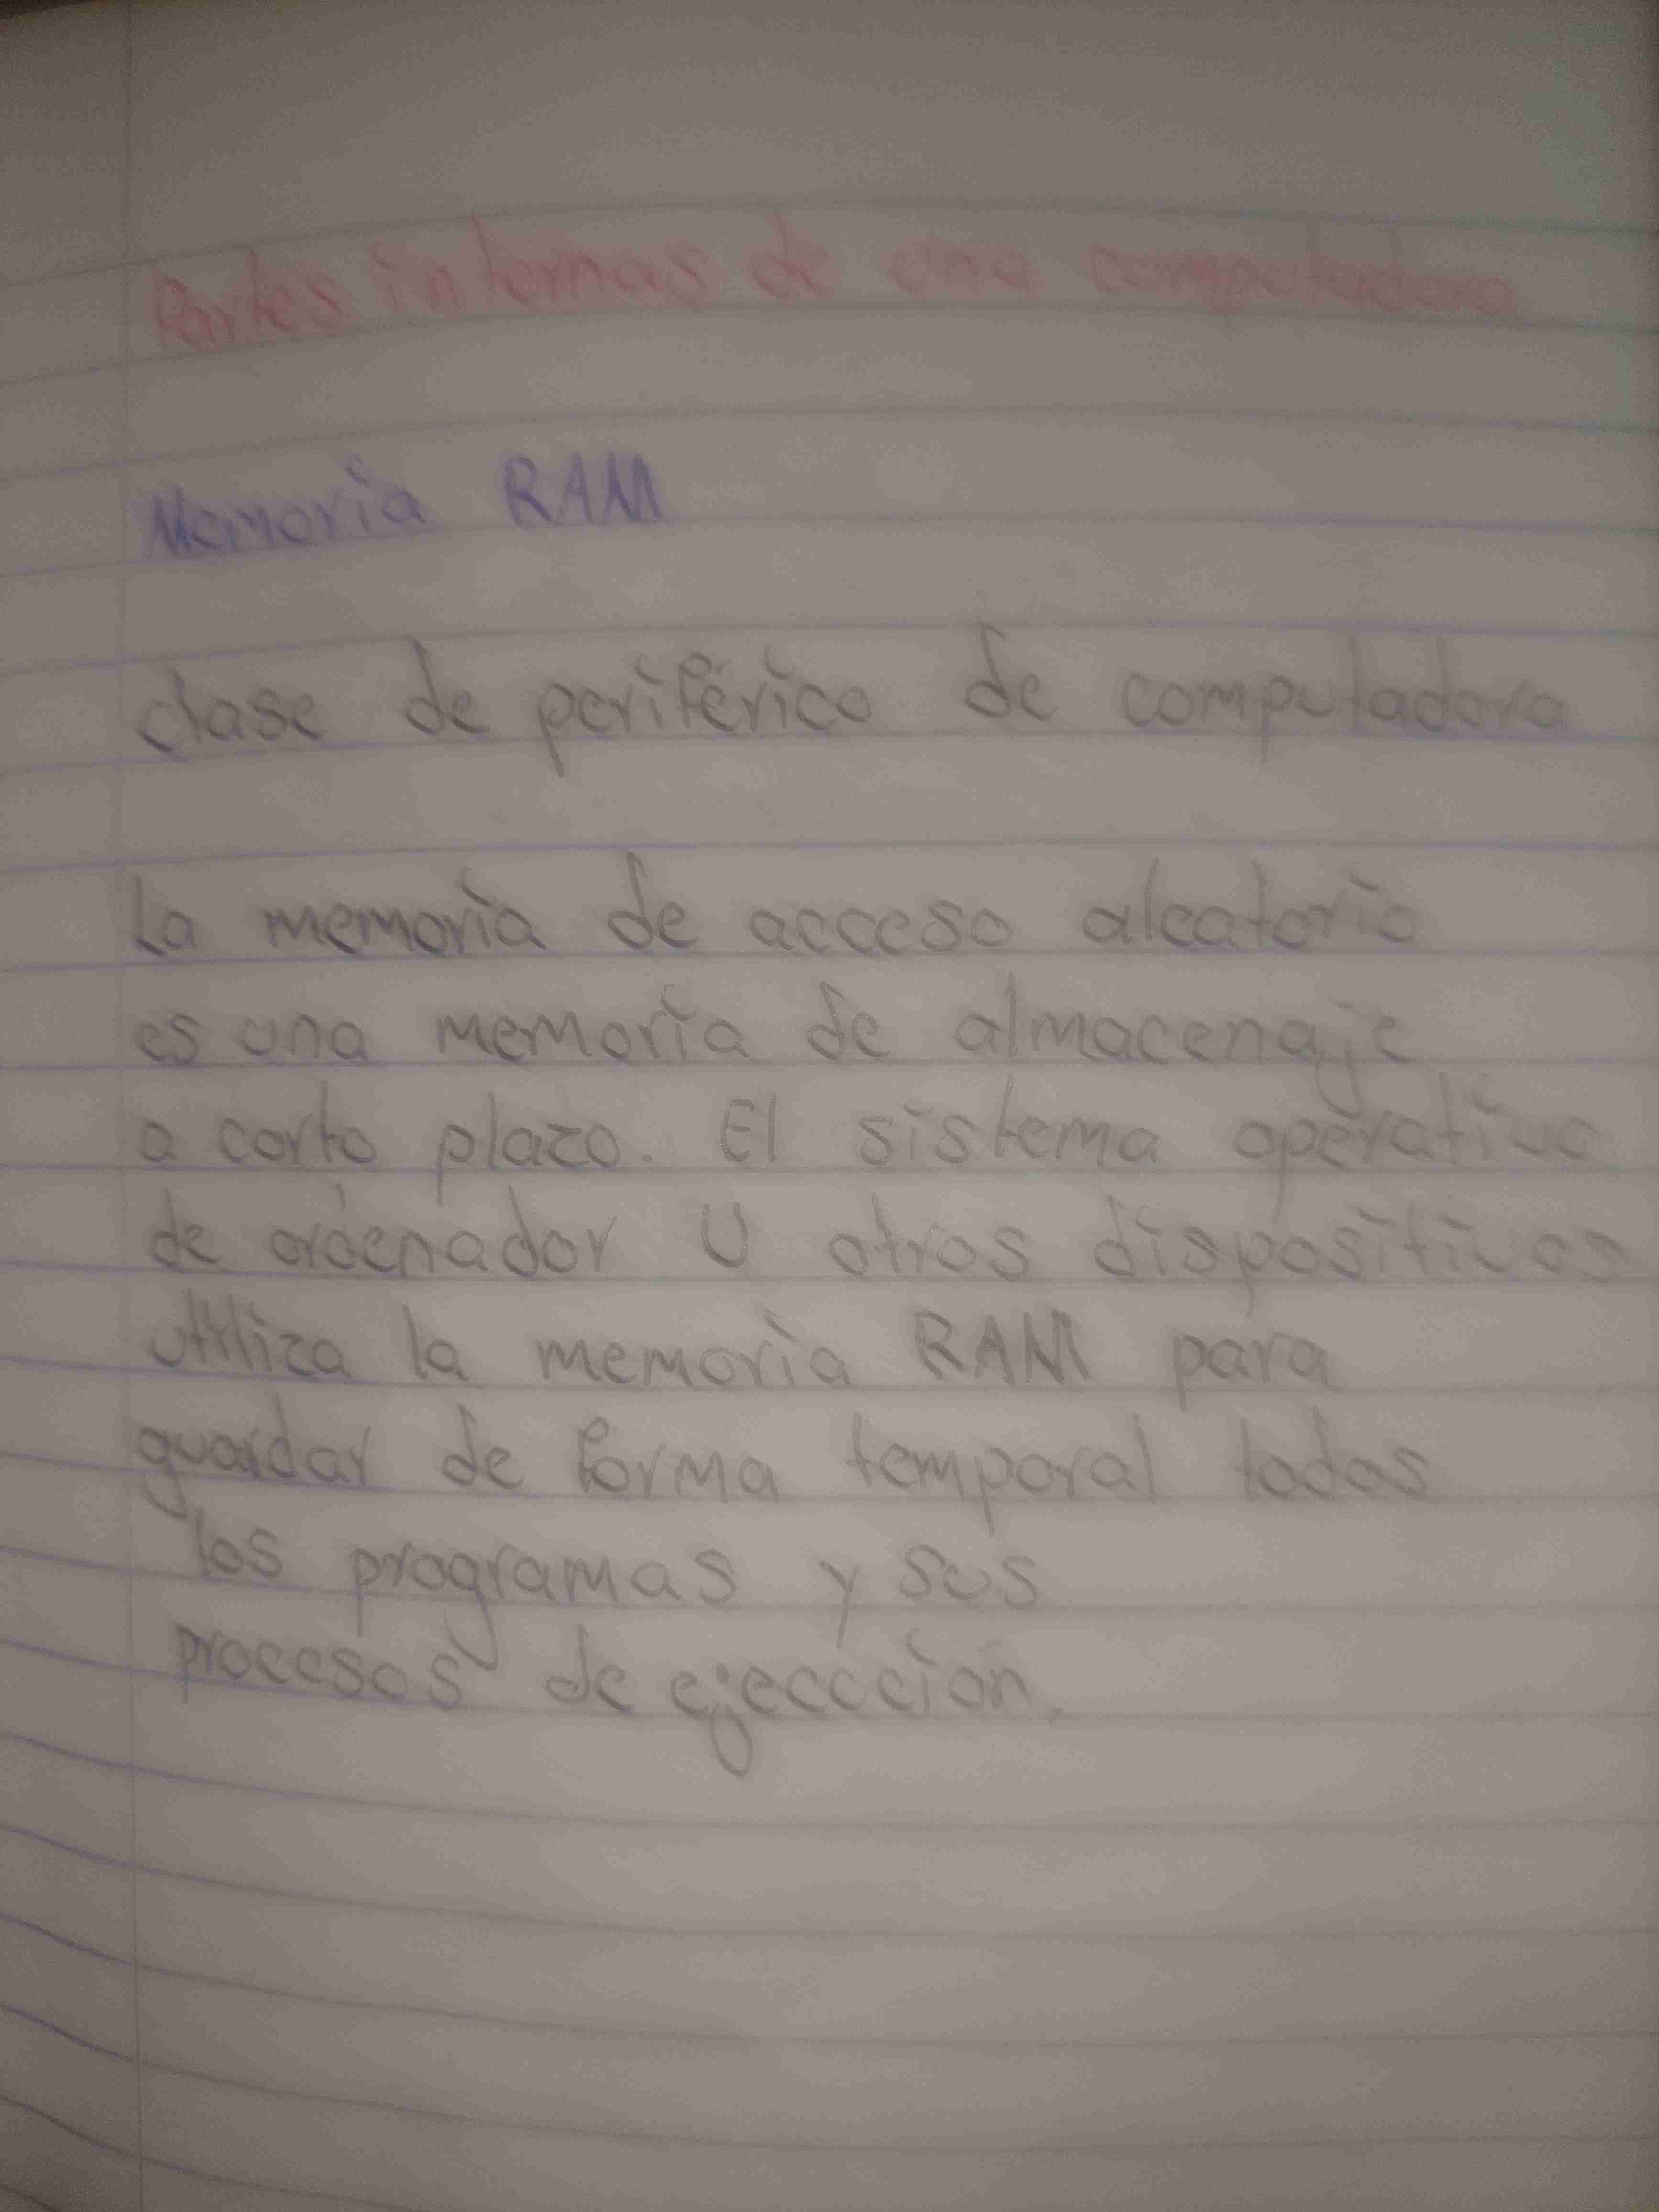 Partes internas de una computadora
Memoria RAM
clase de periférico de computadora
La memoria de acceso aleatorio
es una memoria de almacenaje
a corto plazo. El sistema operativo
de ordenador U otros dispositivos
utiliza la memoria RAM para
guardar de forma temporal todos
los programas y sus
procesos de ejeccción.